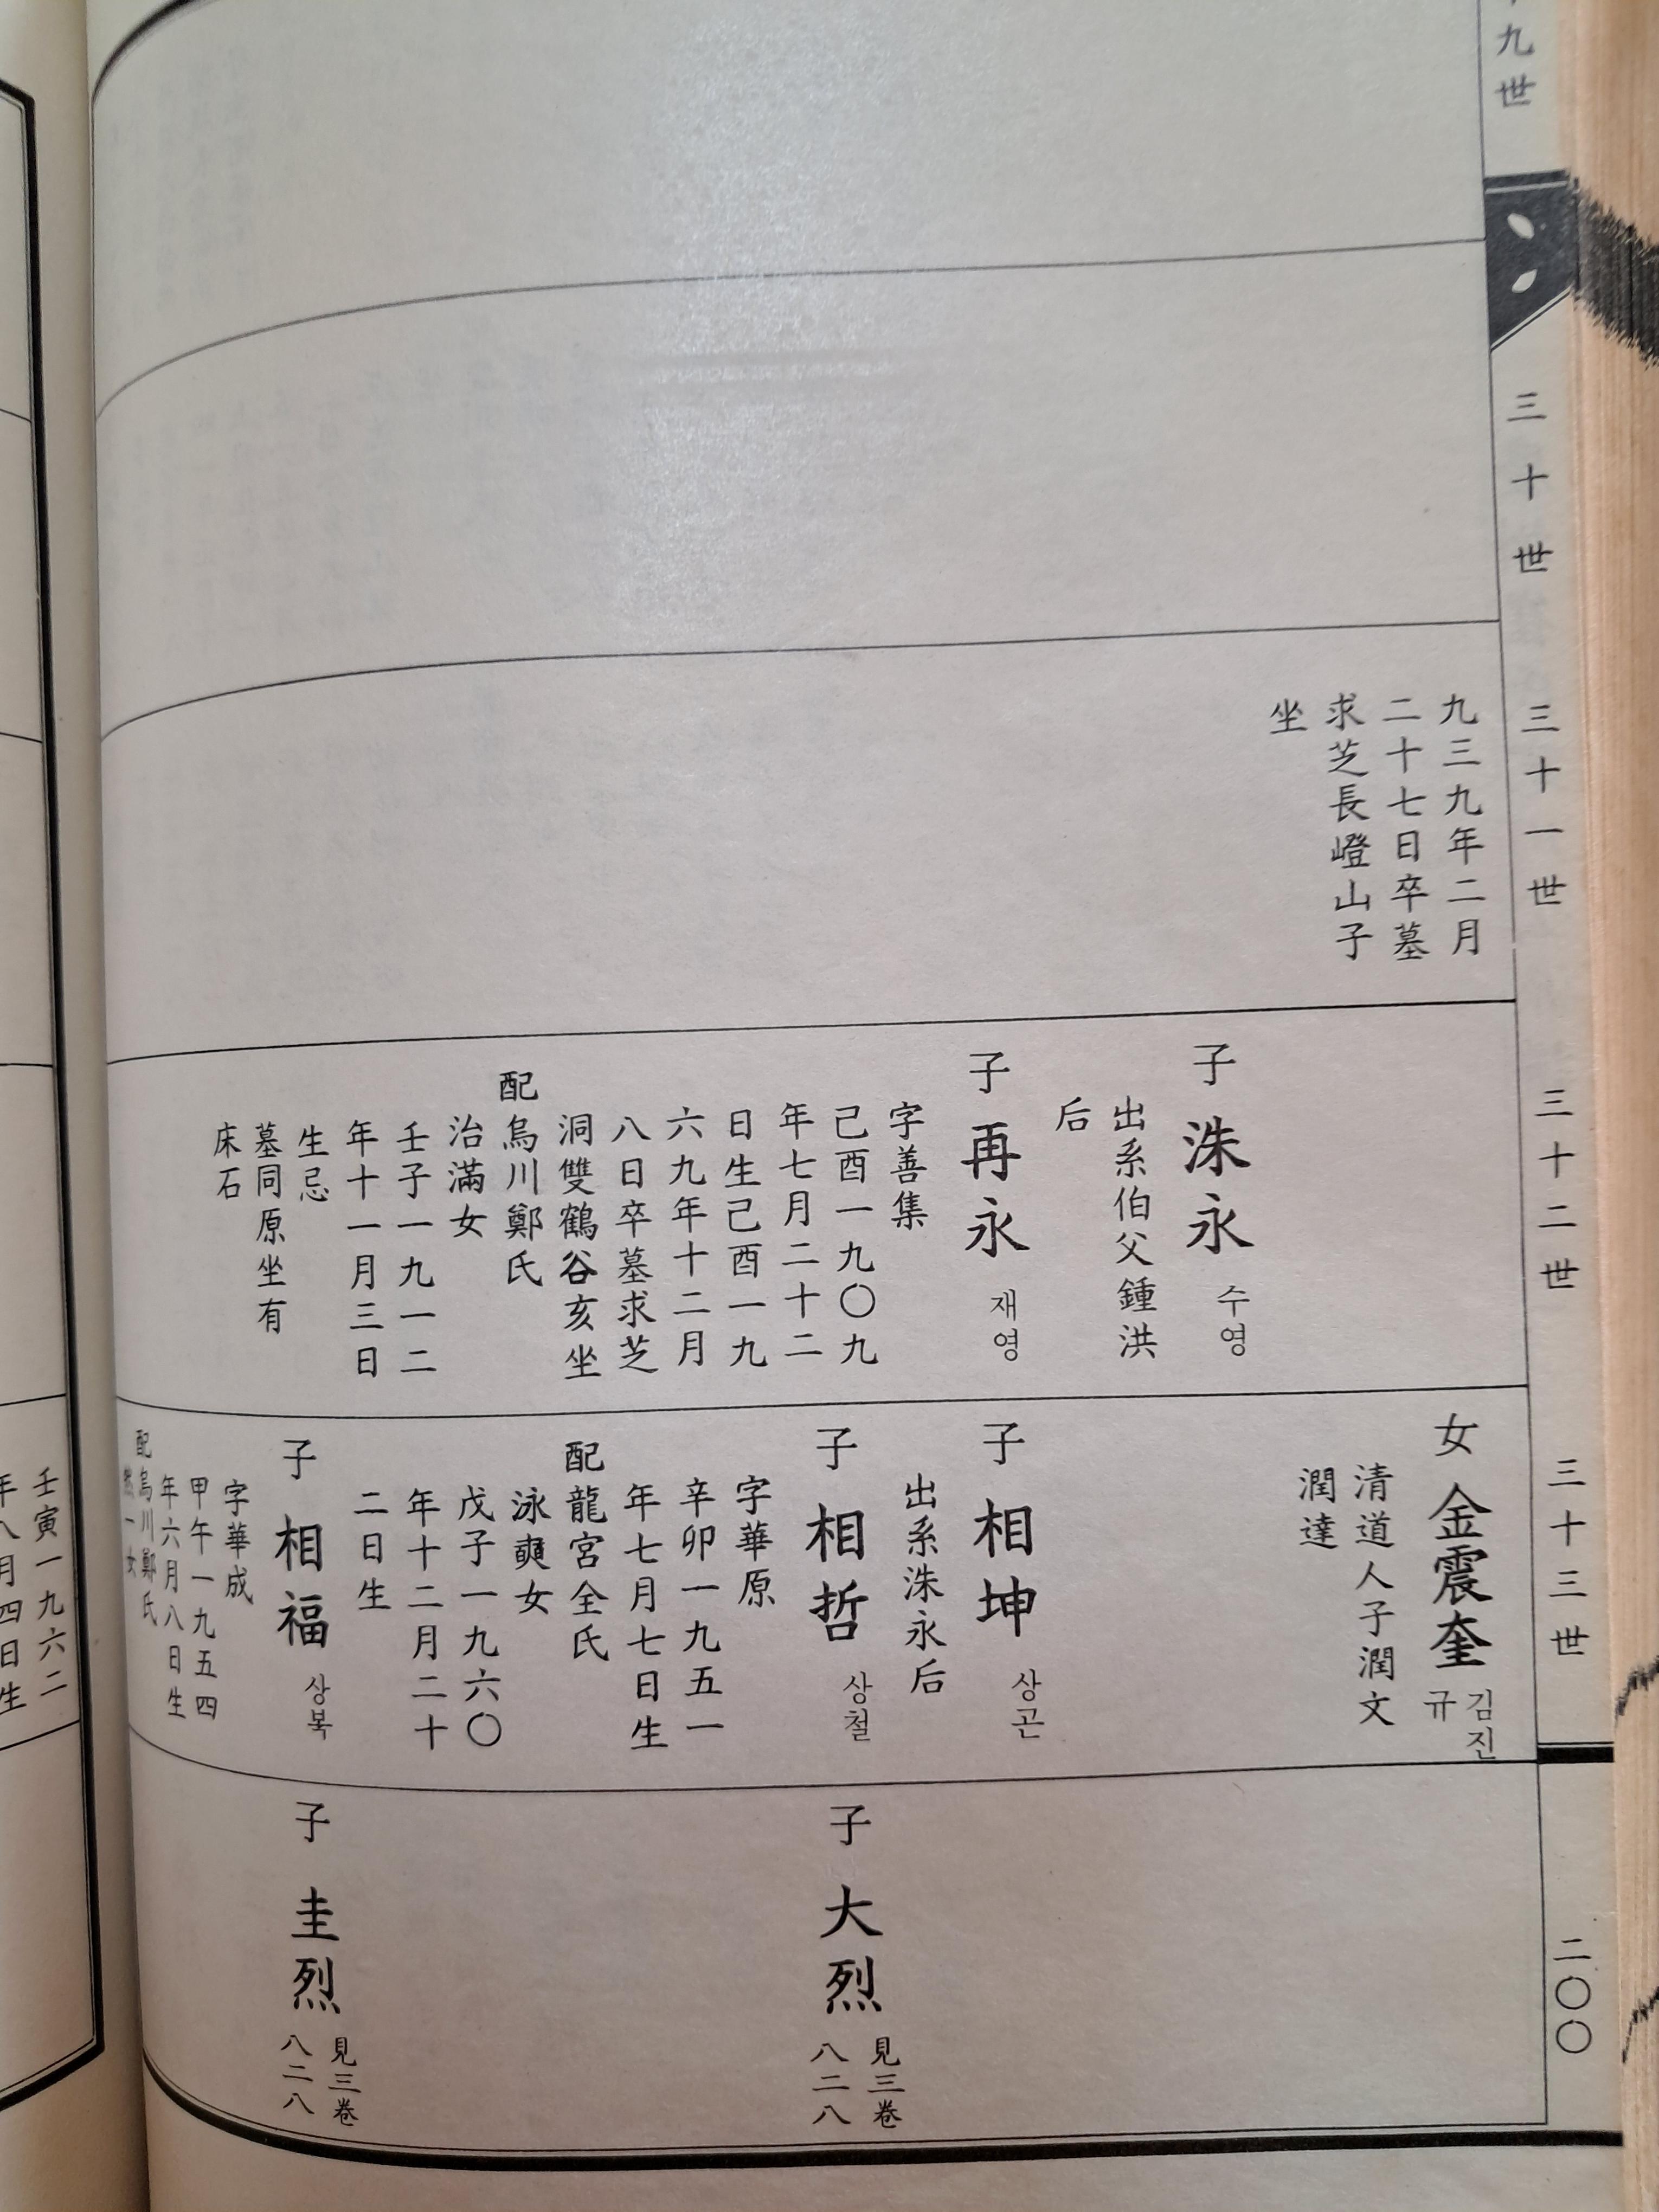 九世
三十世
三十一世
三十二世
三十三世
二〇〇
九三九年二月
二十七日卒墓
求芝長嶝山子
坐
子 洙永 수영
出系伯父鍾洪
后
子 再永 재영
字善集
己酉一九〇九
年七月二十二
日生己酉一九
六九年十二月
八日卒墓求芝
洞雙鶴谷亥坐
配烏川鄭氏
治滿女
壬子一九一二
年十一月三日
生忌
墓同原坐有
床石
女 金震奎 김진
규
清道人子潤文
潤達
子 相坤 상곤
出系洙永后
子 相哲 상철
字華原
辛卯一九五一
年七月七日生
配龍宮全氏
泳奭女
戊子一九六〇
年十二月二十
二日生
子 相福 상복
字華成
甲午一九五四
年六月八日生
配烏川鄭氏
一女
子 大烈 見三卷
八二八
子 圭烈 見三卷
八二八
壬寅一九六二
年八月四日生